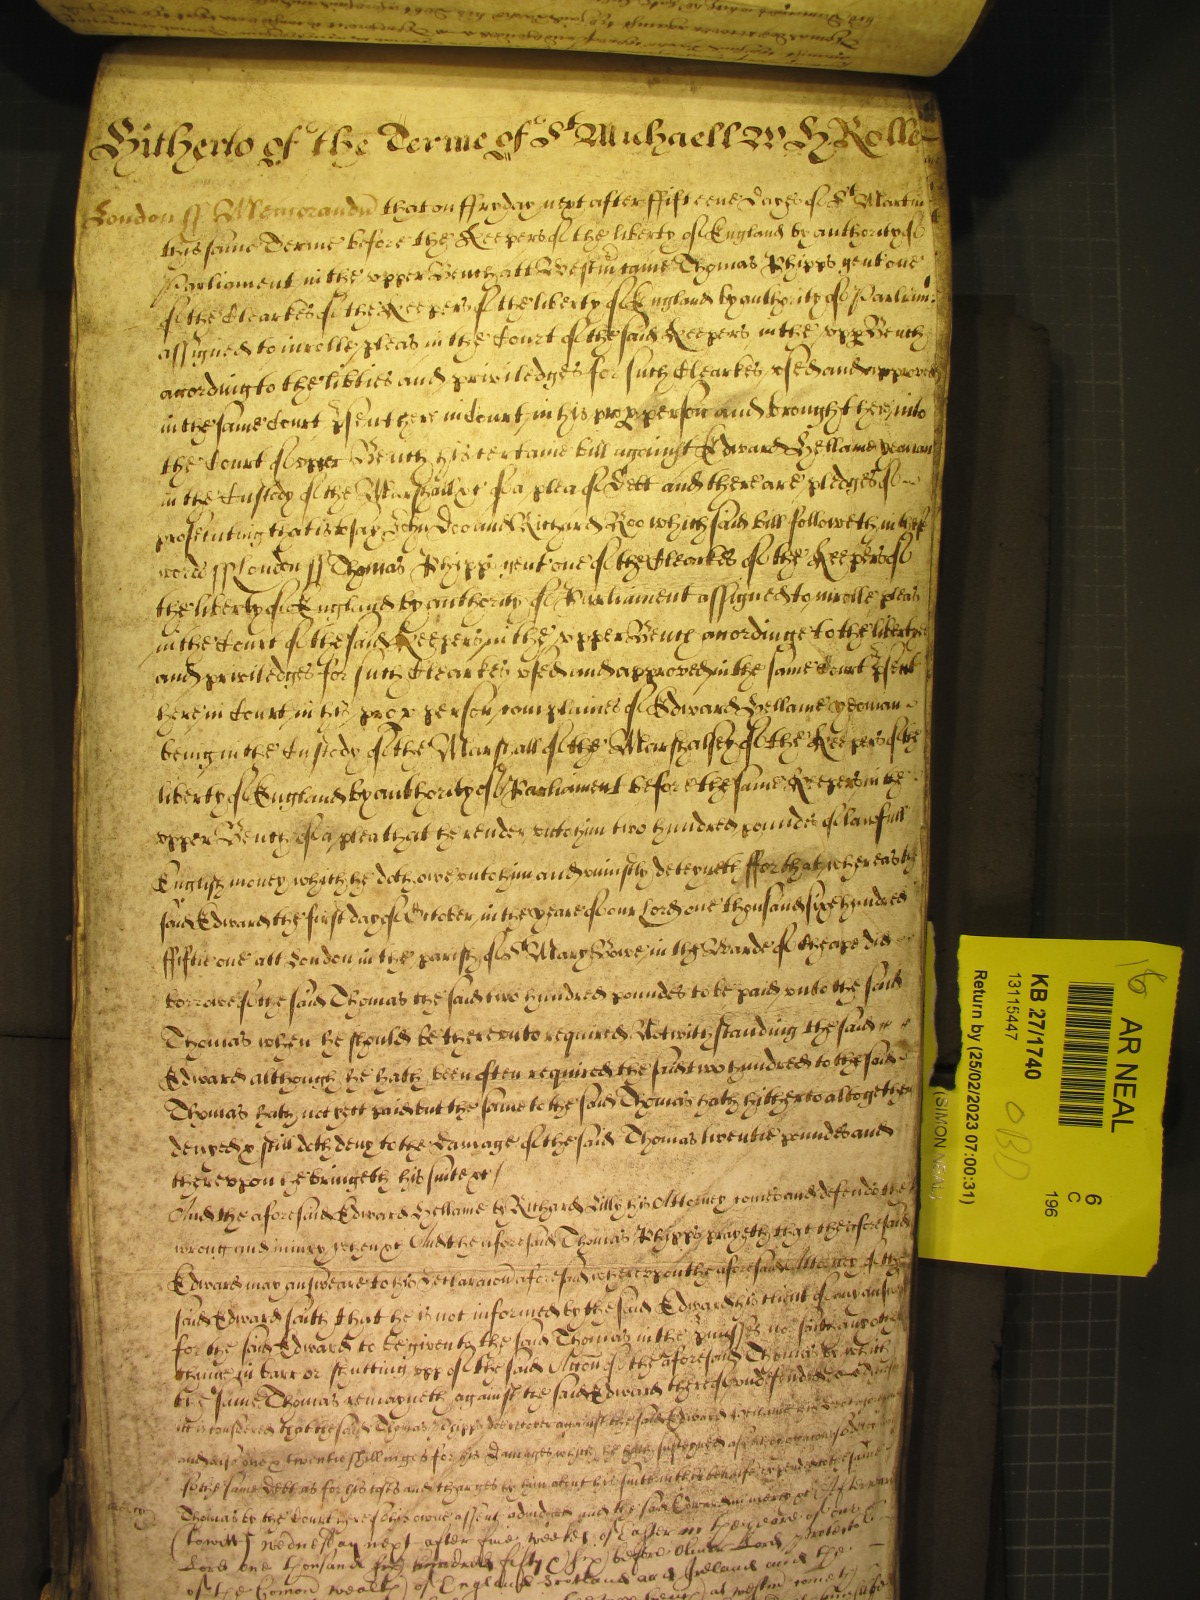 Hitherto of the Terme of St Michaell W H Rolle
London ss Memorandu that on ffryday next after ffifteene dayes of St Martin
this same Terme before the Keepers of the liberty of England by authority of
Parliament in the upper Bench att Westm came Thomas Phipps gent one
of the Clearkes of the Keepers of the liberty of England by authority of Parliam
assigned to inrolle pleas in the Court of the said Keepers in the upp Bench
acording to the lib'ties and priviledges for such Clearkes used and approved
in the same Court p'sent here in Court in his prop person and brought here into
the Court of upper Bench his certaine bill against Edward Hellame yeoman
in the Custody of the Marshall &c of a plea of Dett and there are pledges of
prosecuting that is to say John Doo and Richard Roo which said bill followeth in these
words ss London ss Thomas Phipps gent one of the Clearkes of the Keepers of
the liberty of England by authority of Parliament assigned to inrolle pleas
in the Court of the said Keepers in the upper Bench acordinge to the liberties
and priviledges for such Clearkes used and approved in the same Court p'sent
here in Court in his prop person complaines of Edward Hellame yeoman
being in the Custody of the Marshall of the Marshalsey of the Keepers of the
liberty of England by authority of Parliament before the same Keepers in the
upper Bench of a plea that he render unto him two hundred poundes of lawfull
English money which he doth owe unto him and uniustly deteyneth ffor that whereas the
said Edward the first day of October in the yeare of our Lord one thousand sixe hundred
ffiftie one att London in the parish of St Mary Bowe in the Warde of Cheape did
borrowe of the said Thomas the said two hundred poundes to be paid unto the said
Thomas when he should be thereunto required Notwithstanding the said
Edward although he hath been often required the said two hundred to the said
Thomas hath not yett paid but the same to the said Thomas hath hitherto altogether
denyed & still doth deny to the damage of the said Thomas twentie poundes and
thereupon he bringeth his suite &c
And the aforesaid Edward Hellame by Richard Lilly his Attorney comes and defends the
wrong and iniury when &c And the aforesaid Thomas Phipps prayeth that the aforesaid
Edward may answeare to his Declaracion aforesaid whereupon the aforesaid Attorney of the
said Edward saith that he is not informed by the said Edward his client of any answer
for the said Edward to be given to the said Thomas in the p'misses nor saith any other
thinge in barr or shutting upp of the said Accon of the aforesaid Thomas by which
the same Thomas remayneth against the said Edward thereof undefended
it is considered that the said Thomas Phipps doe recover against the said Edward Hellame his Dett aforesaid
and also twentie shillinges for his damages which he hath susteyned
of the same Debt as for his costs and charges by him about his suite in this behalfe expended to the same
mercy
Thomas by the Court here of his owne assent adiudged and the said Edward in mercy &c Afterward
(towitt) wednesday next after five weekes of Easter in the yeare of our
Lord one thousand six hundred fifty six before Oliver Lord Protector
of the Comon wealth of England Scotland and Ireland and the
16
AR NEAL
KB 27/1740
13115447
Return by (25/02/2023 07:00:31)
6
C
196
OBD
(SIMON NEAL)